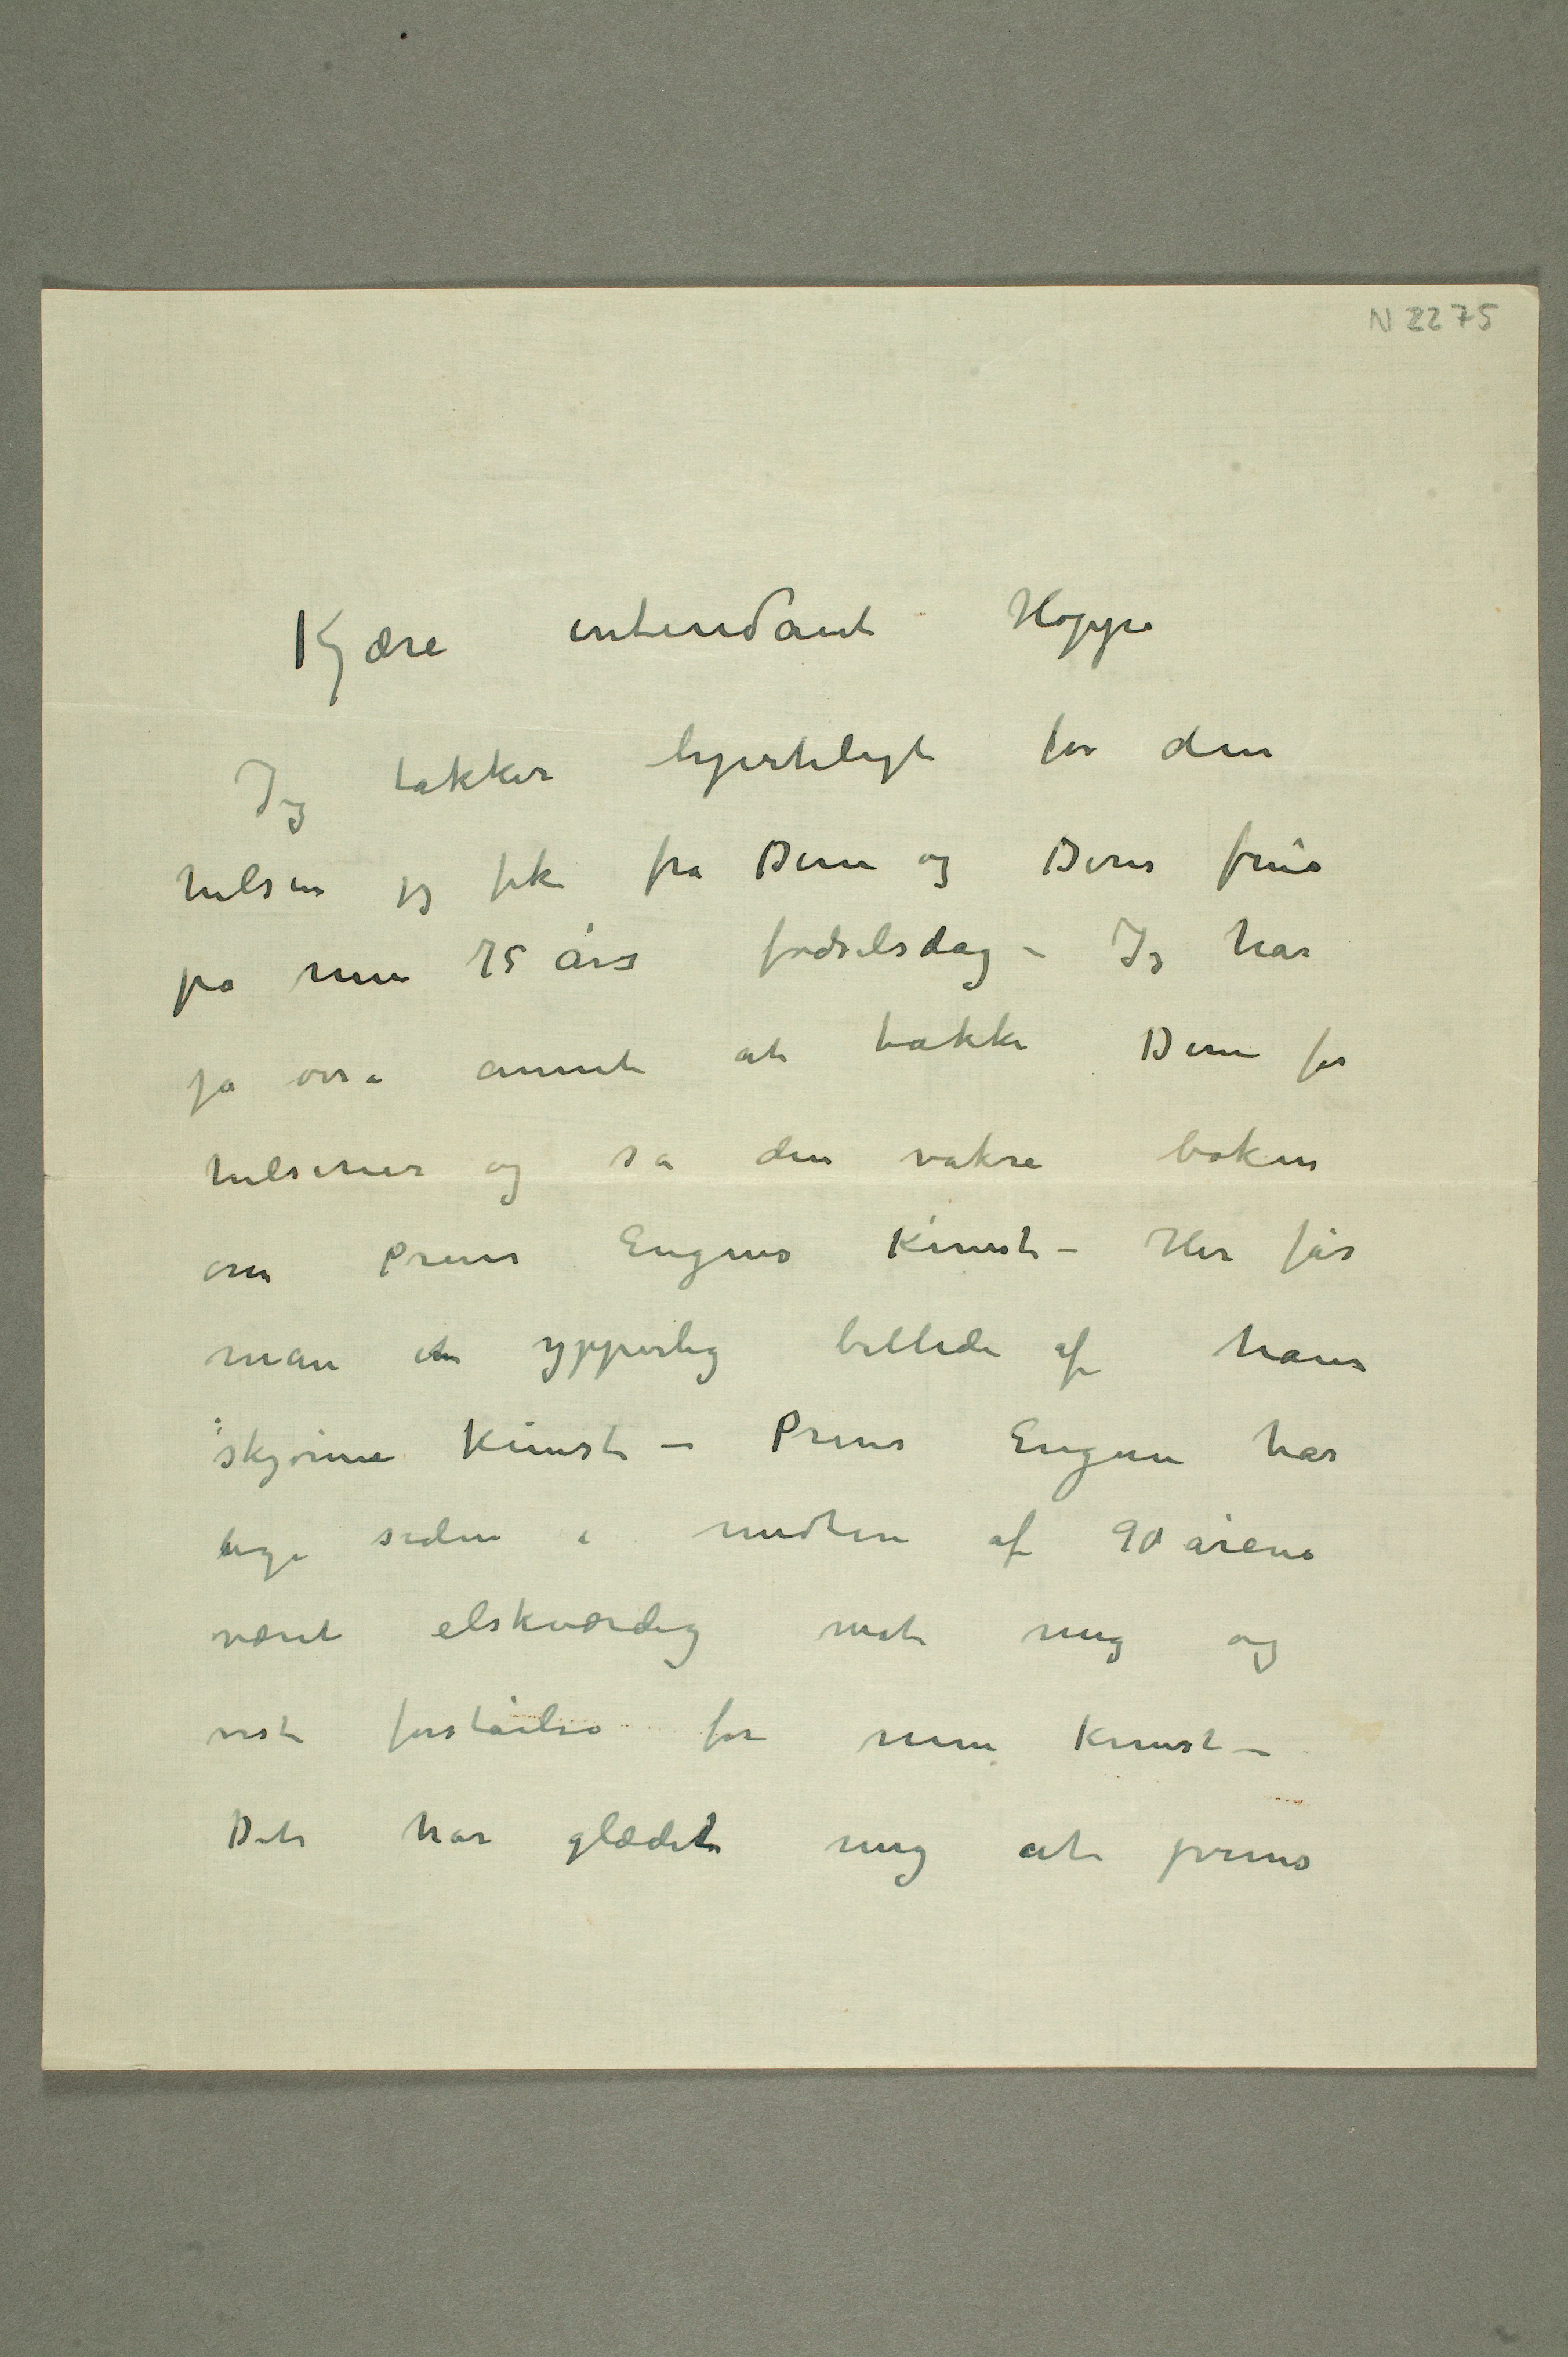 N 2275
Kjære intendant Hoppe
Jeg takker hjerteligt for den
hilsen jeg fik fra Dem og Deres frue
på min 75 års fødselsdag – Jeg har
ja annet at takke Dem for
hilsener og så den vakre boken
om Prins Eugens Kunst – Her får
man en ypperlig billede af hans
skjønne Kunst – Prins Eugen har
lige siden i midten af 90 årene
været elskværdig mot mig og
vist forståelse for min Kunst –
Det har glædet mig at prins